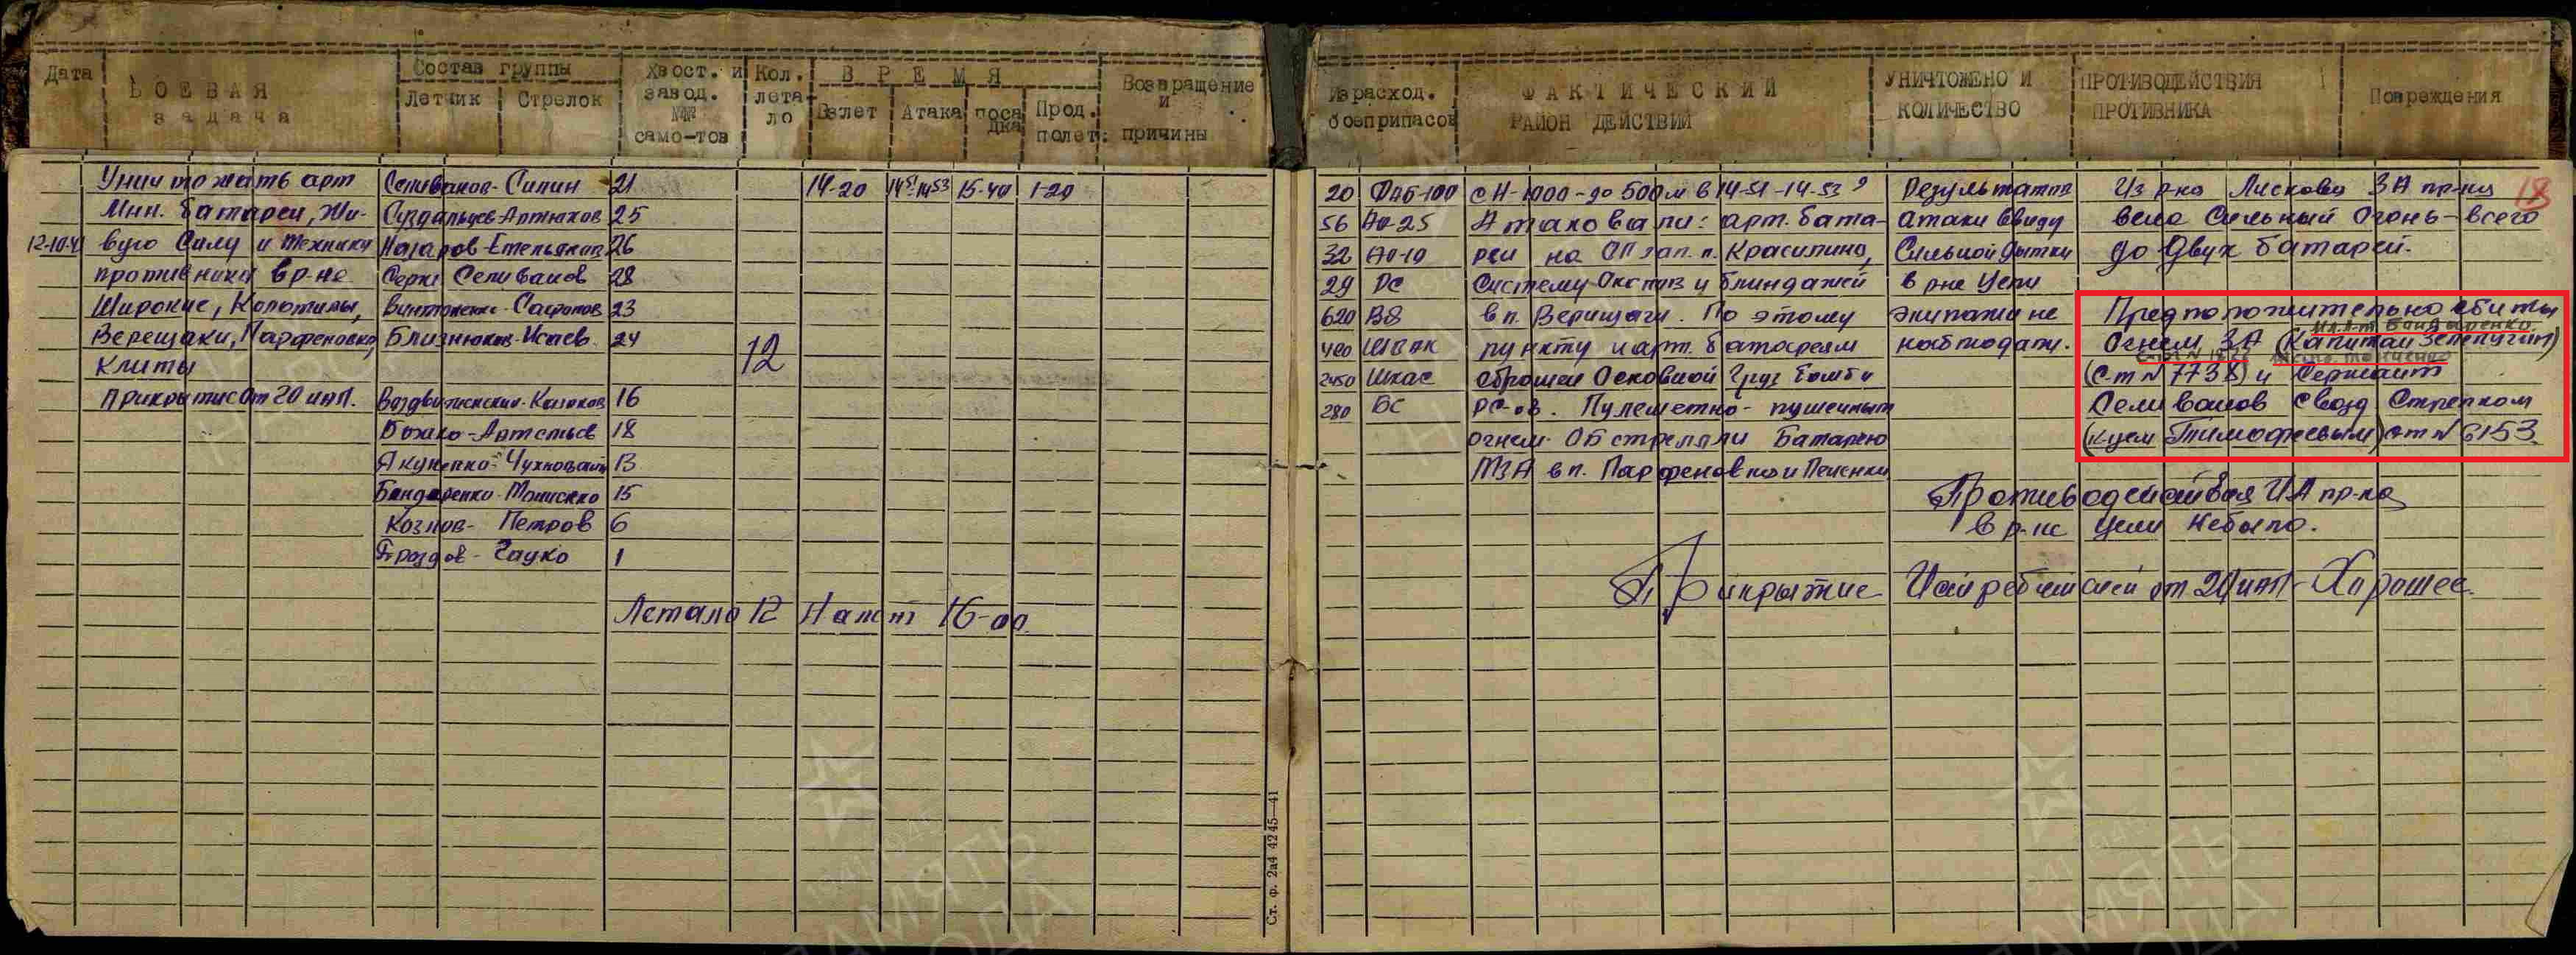 Дата
БОЕВАЯ
задача
Состав группы
Летчик Стрелок
Хвост. и
завод.
№№
само-тов
Кол.
лета
ло
ВРЕМЯ
Взлет Атака поса
дка Прод.
полет:
Возвращение
и
причины
Израсход.
боеприпасов
ФАКТИЧЕСКИЙ
РАЙОН ДЕЙСТВИЙ
УНИЧТОЖЕНО И
КОЛИЧЕСТВО
ПРОТИВОДЕЙСТВИЯ
ПРОТИВНИКА
Повреждения
18
Уничтожать арт Селиванов-Силин 21 14-20 14 51-14 53 15-40 1-20
Мин. батареи, жи- Суздальцев-Артюхов 25
12-10-4 вую силу и технику Назаров-Емельянов 26
противника в р-не Серкс Селиванов 28
Широкие, Колотилы, Винтоненко-Сафонов 23
Верещаки, Парфеновка, Близнюков-Исаев 24
Клиты 12
Прикрытие от 20 иап. Воздвиженский-Казаков 16
Божко-Артемьев 18
Якуненко-Чухновский 13
Бандаренко-Тонисенко 15
Козлов-Петров 6
Гроздов-Гацко 1
Летало 12 Налет 16-00
20 ФАБ-100 с Н-1000-до 500м в 14-51-14-53 Результатов Из р-на Лисково ЗА пр-ка
56 АО-25 Атаковали: арт. бата- атаки ввиду вела сильный огонь-всего
32 АО-10 реи на ОП зап. п. Красилино, сильной дымки до двух батарей.
29 РС Систему окопов и блиндажей в р-не цели
620 ВЯ в п. Верищаги. По этому экипажи не Предположительно сбиты
400 ШВАК пункту и арт. батареям наблюдали. огнем ЗА (Капитан Зелепугин)
мл. л-т Бандыренко
2450 Шкас сброшен основной груз бомб и (с-т №7738) и Сержант
280 БС РС-ов. Пулеметно-пушечным Селиванов с возд Стрелком
огнем обстреляли батарею (куем Тимофеевым) с-т №6153
МЗА в п. Парфеновка и Печенки
Противодействия ИА пр-ка
в р-не цели небыло.
Прикрытие Истребителей от 20 иап-Хорошее.
Ст. ф. 2а4 4245-41
ПАМЯТЬ
ПАМЯТЬ